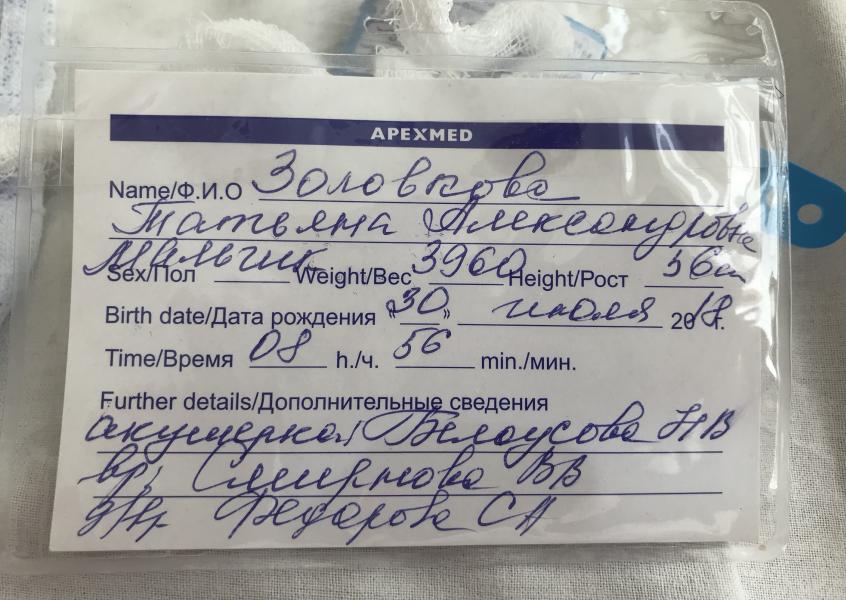 APEXMED
Name/Ф.И.О Золовкова
Татьяна Александровна
Мальчик
Sex/Пол Weight/Вес 3960 Height/Рост 56см
Birth date/Дата рождения "30" июля 2018г.
Time/Время 08 h./ч. 56 min./мин.
Further details/Дополнительные сведения
акушерка: Белоусова НВ
вр. Смирнова ВВ
Федорова СА